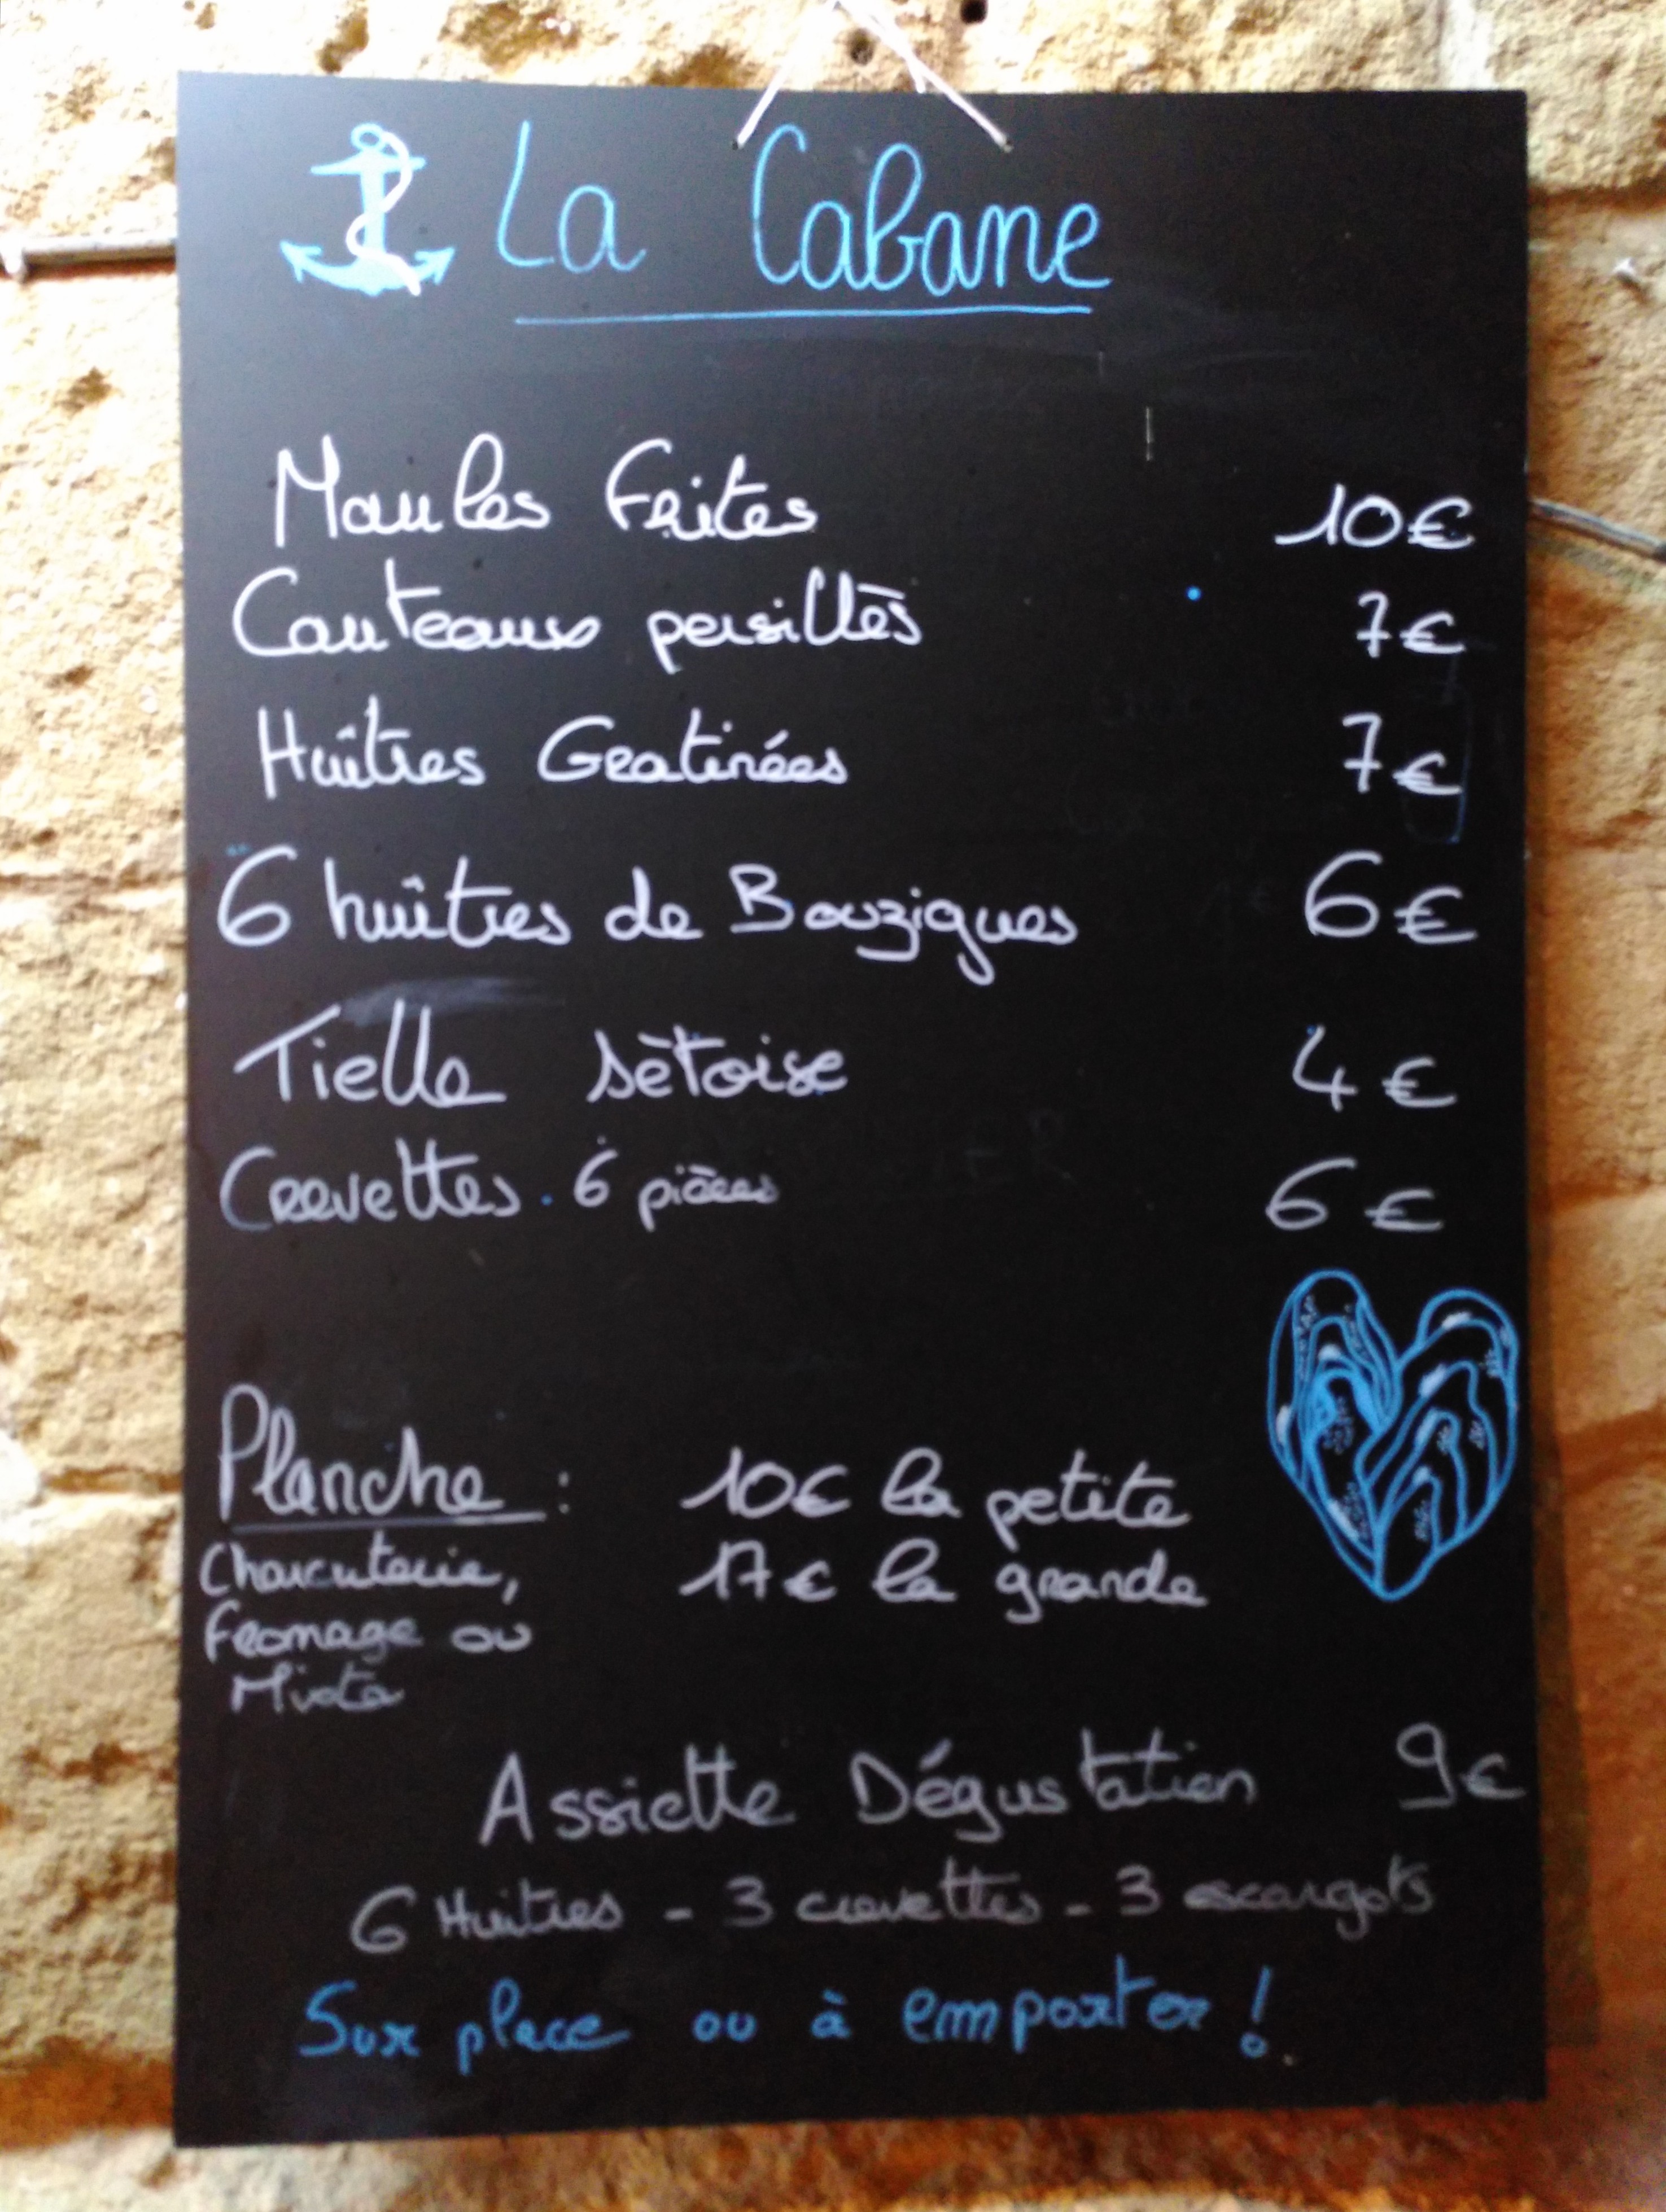 La Cabane
Moules Frites 10€
Couteaux persillès 7€
Huîtres Gratinées 7€
6 huîtres de Bouzigues 6€
Tielle sètoise 4€
Crevettes. 6 pièces 6€
Planche : 10€ la petite
Charcuterie, 17€ la grande
Fromage ou
Mixte
Assiette Dégustation 9€
6 Huitres - 3 crevettes - 3 escargots
Sur place ou à emporter !